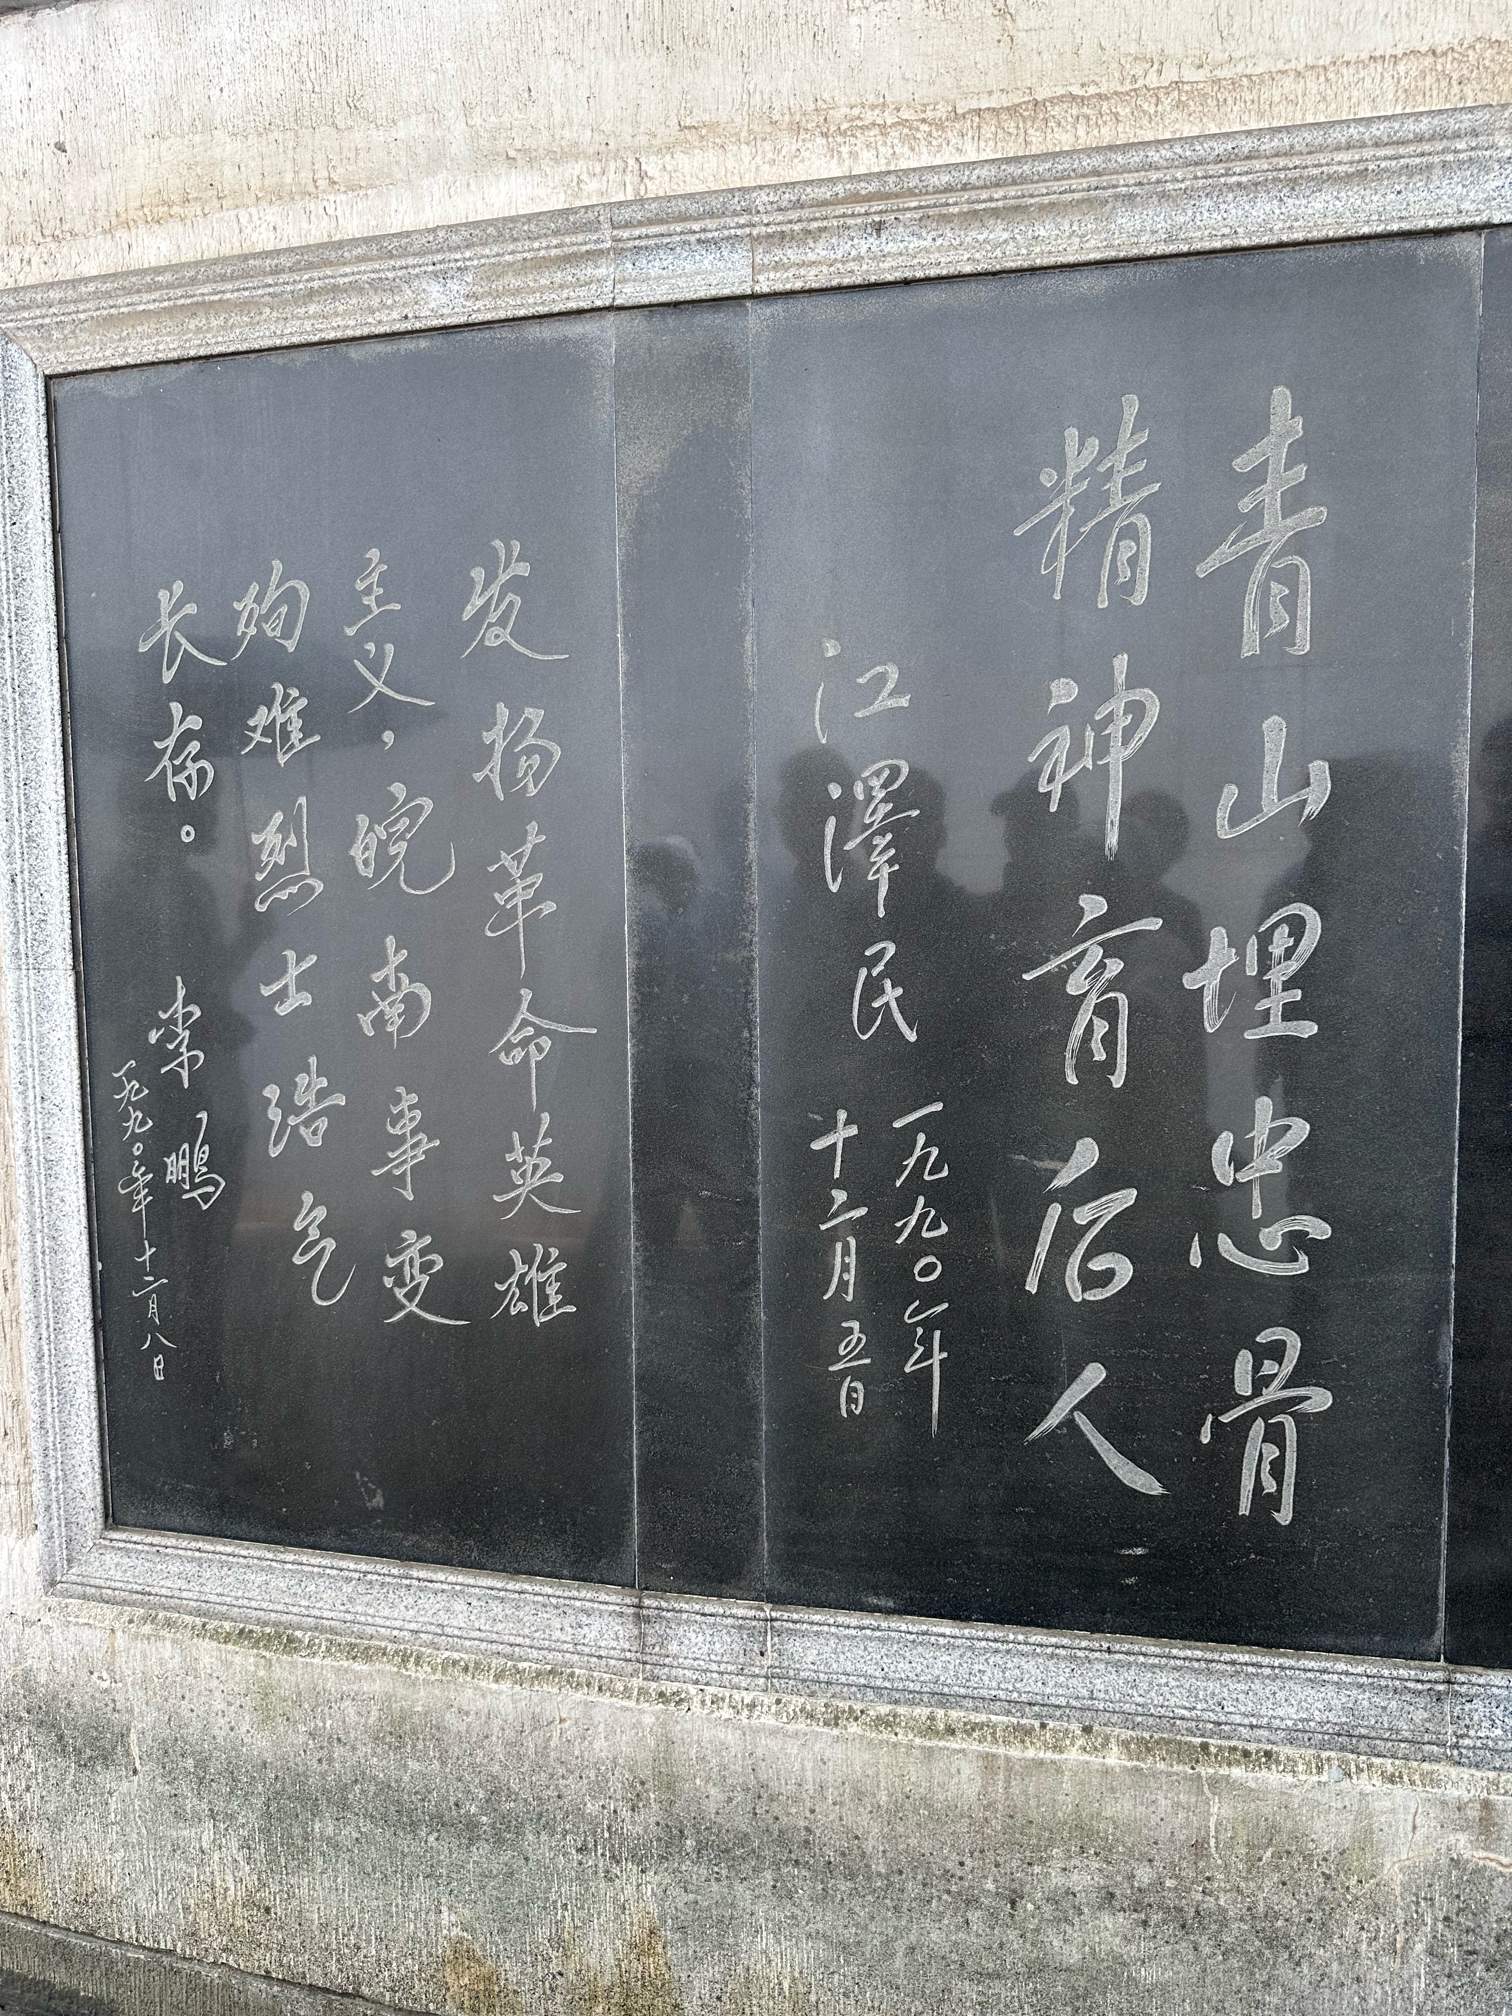 青山埋忠骨
精神育后人
江澤民
一九九〇年
十二月五日
发扬革命英雄
主义，皖南事变
殉难烈士浩气
长存。
李鹏
一九九〇年十二月八日